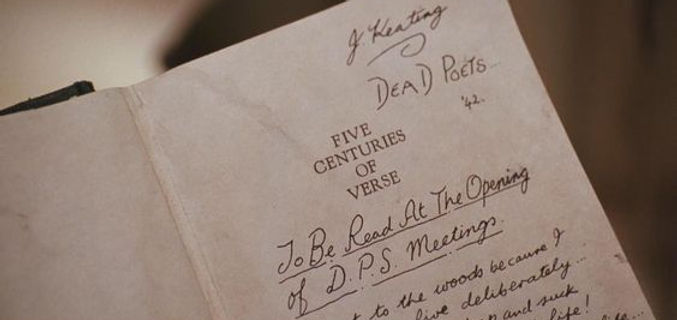 J. Keating
DEAD POETS
'42.
FIVE
CENTURIES
OF
VERSE
To Be Read At The Opening
of D.P.S. Meetings.
to the woods because I
live deliberately...
and suck
life!